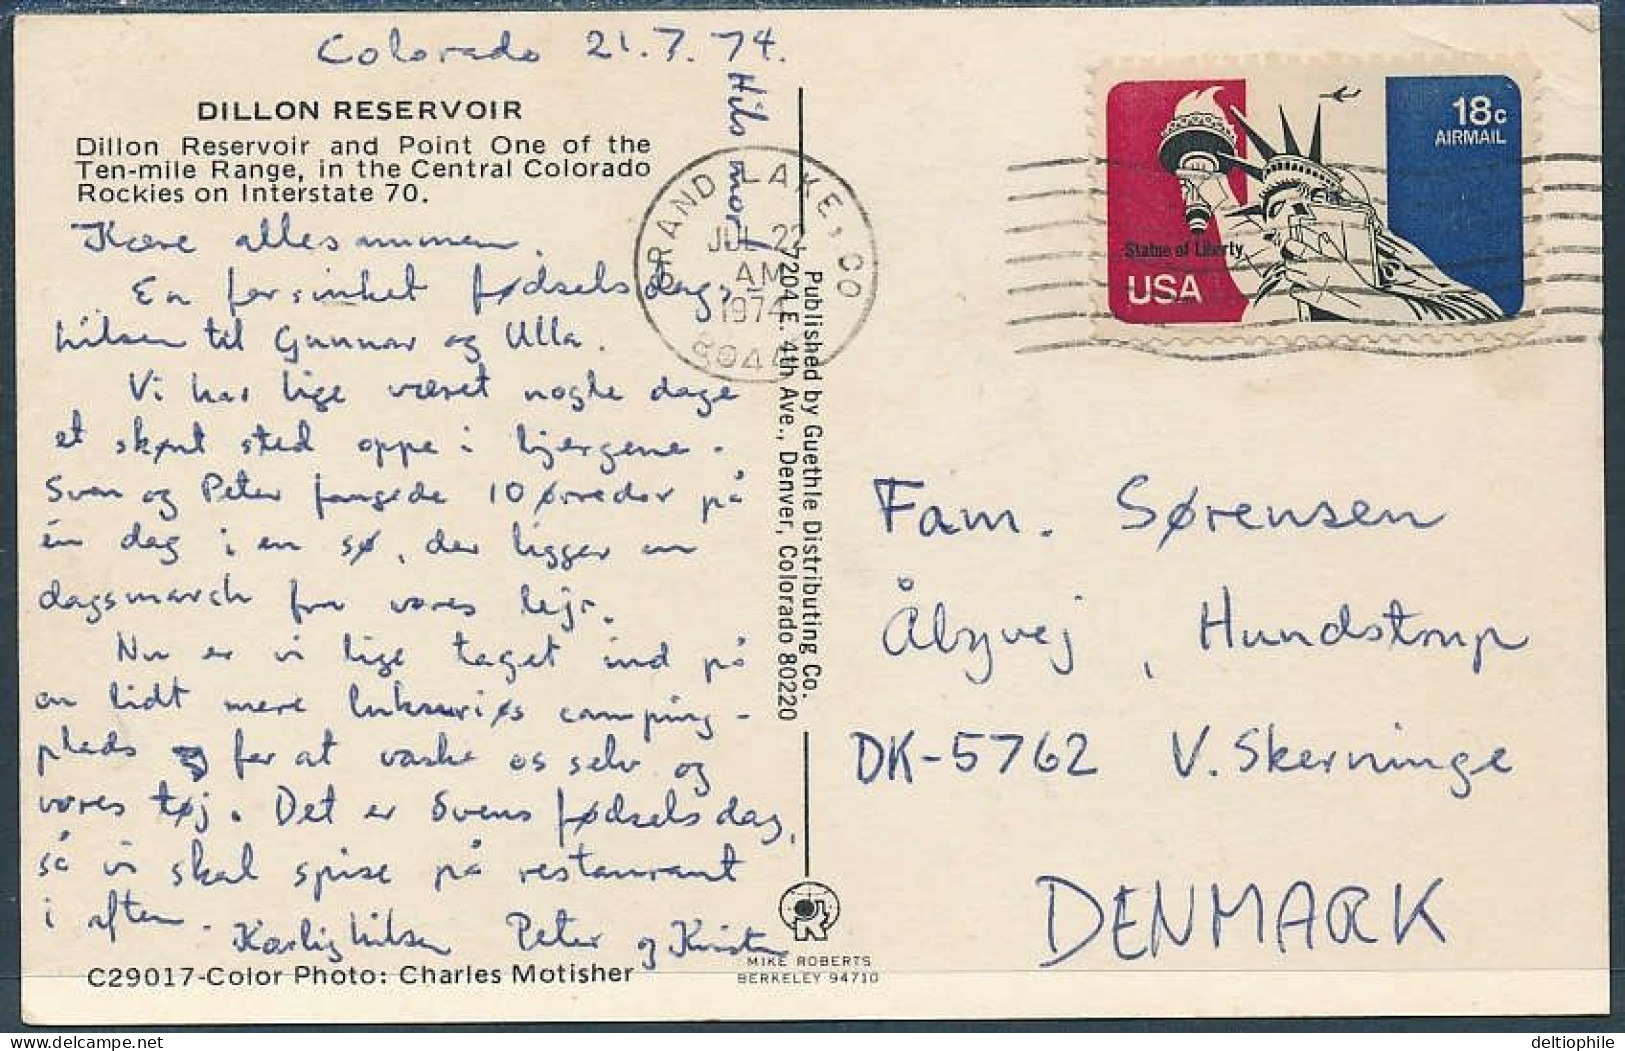 Colorado 21.7.74.
Hils mor!
DILLON RESERVOIR
Dillon Reservoir and Point One of the
Ten-mile Range, in the Central Colorado
Rockies on Interstate 70.
Kære allesammen.
En forsinket fødselsdags-
hilsen til Gunnar og Ulla.
Vi har lige været nogle dage
et skønt sted oppe i bjergene.
Sven og Peter fangede 10 ørreder på
én dag i en sø, der ligger en
dagsmarch fra vores lejr.
Nu er vi lige taget ind på
en lidt mere luksuriøs camping-
plads for at vaske os selv og
vores tøj. Det er Svens fødselsdag,
så vi skal spise på restaurant
i aften.
Kærlig hilsen Peter og Kirsten
C29017-Color Photo: Charles Motisher
Published by Guethle Distributing Co.
7204 E. 4th Ave., Denver, Colorado 80220
MIKE ROBERTS
BERKELEY 94710
GRAND LAKE, CO
JUL 22
AM
1974
8044
18c
AIRMAIL
Statue of Liberty
USA
Fam. Sørensen
Ålbyvej, Hundstrup
DK-5762 V. Skerninge
DENMARK
deltiophile